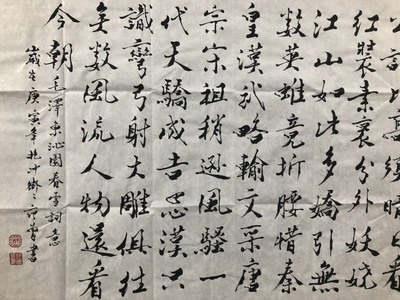 公試比高須晴日看
紅裝素裹分外妖嬈
江山如此多嬌引無
數英雄竟折腰惜秦
皇漢武略輸文采唐
宗宋祖稍遜風騷一
代天驕成吉思漢只
識彎弓射大雕俱往
矣數風流人物還看
今朝 毛澤東沁園春雪詞意
歲在庚寅年 書